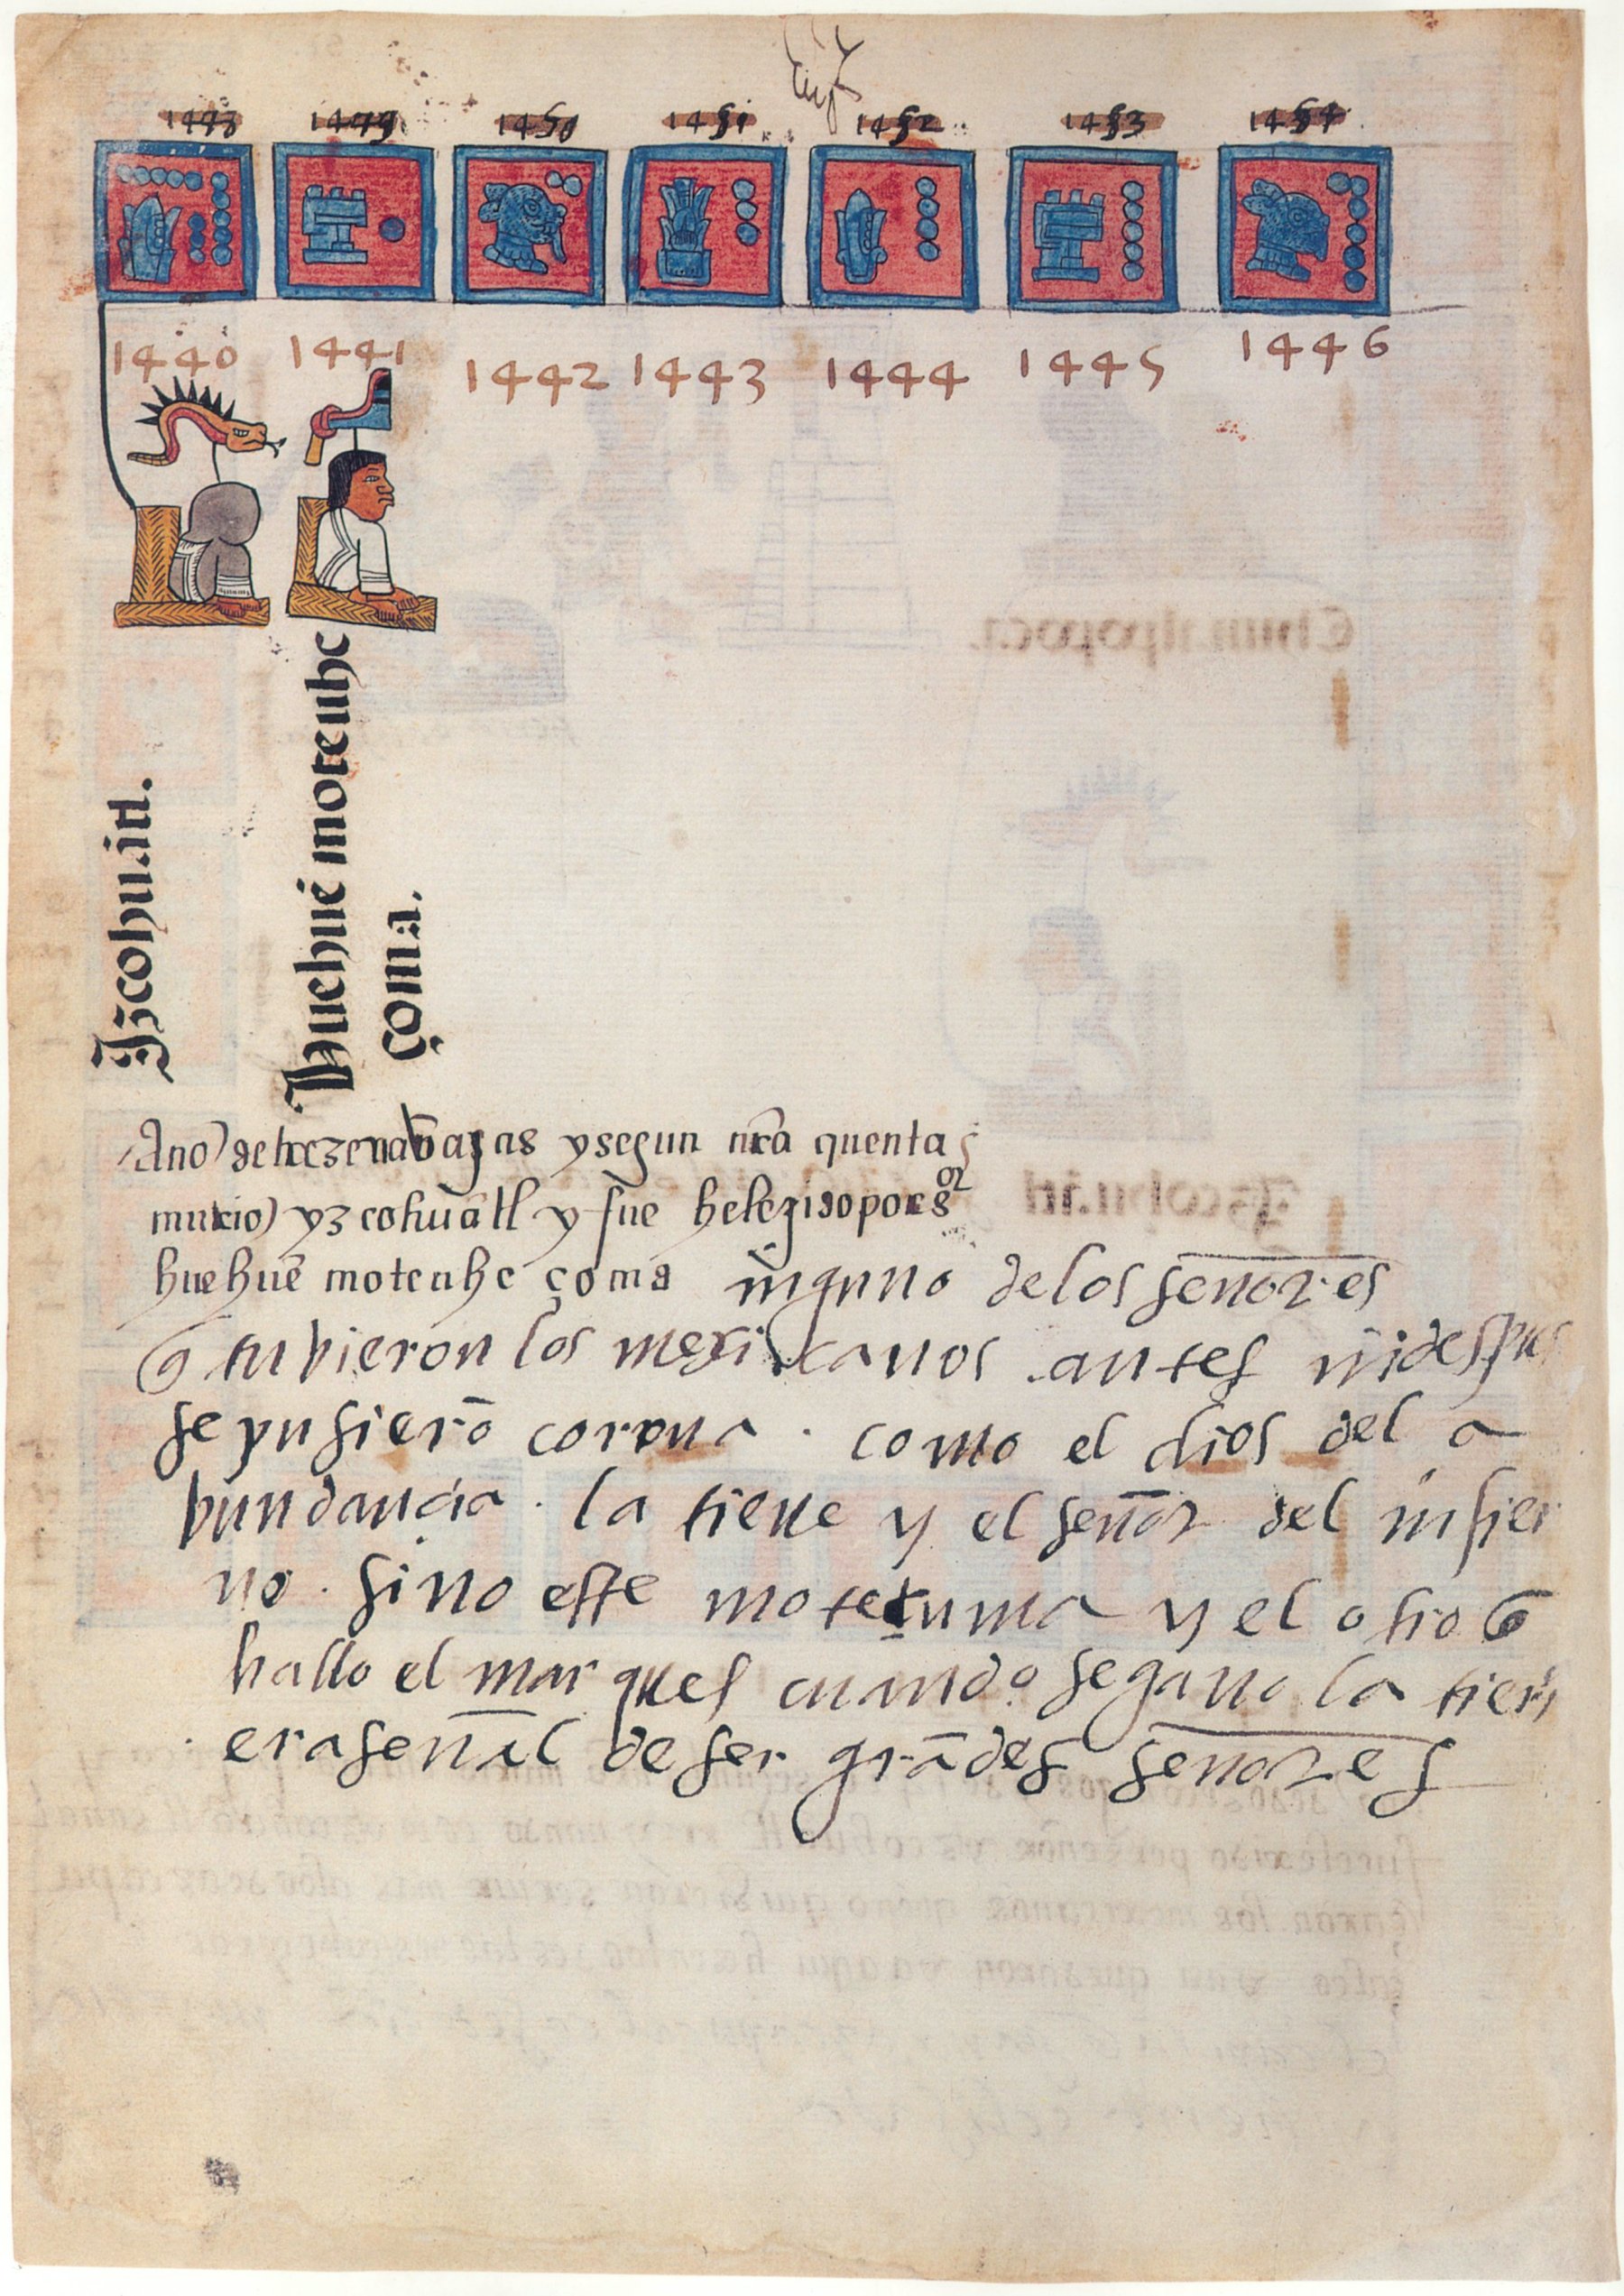 1448 1449 1450 1451 1452 1453 1454
1440 1441 1442 1443 1444 1445 1446
Yzcohuatl.
Huehué moteuhc
çoma.
Año de treze navajas y segun nrã quenta
murio yzcohuatl y fue helegido por sor
huehuē moteuhc çoma ninguno de los señores
q̃ tubieron los mexicanos antes ni despues
se pusierō corona . como el dios del a
bundancia . la tiene y el señor del infier
no . sino este moteçuma y el otro q̃
hallo el marques cuando se gano la tierr
era señal de ser grãdes señores